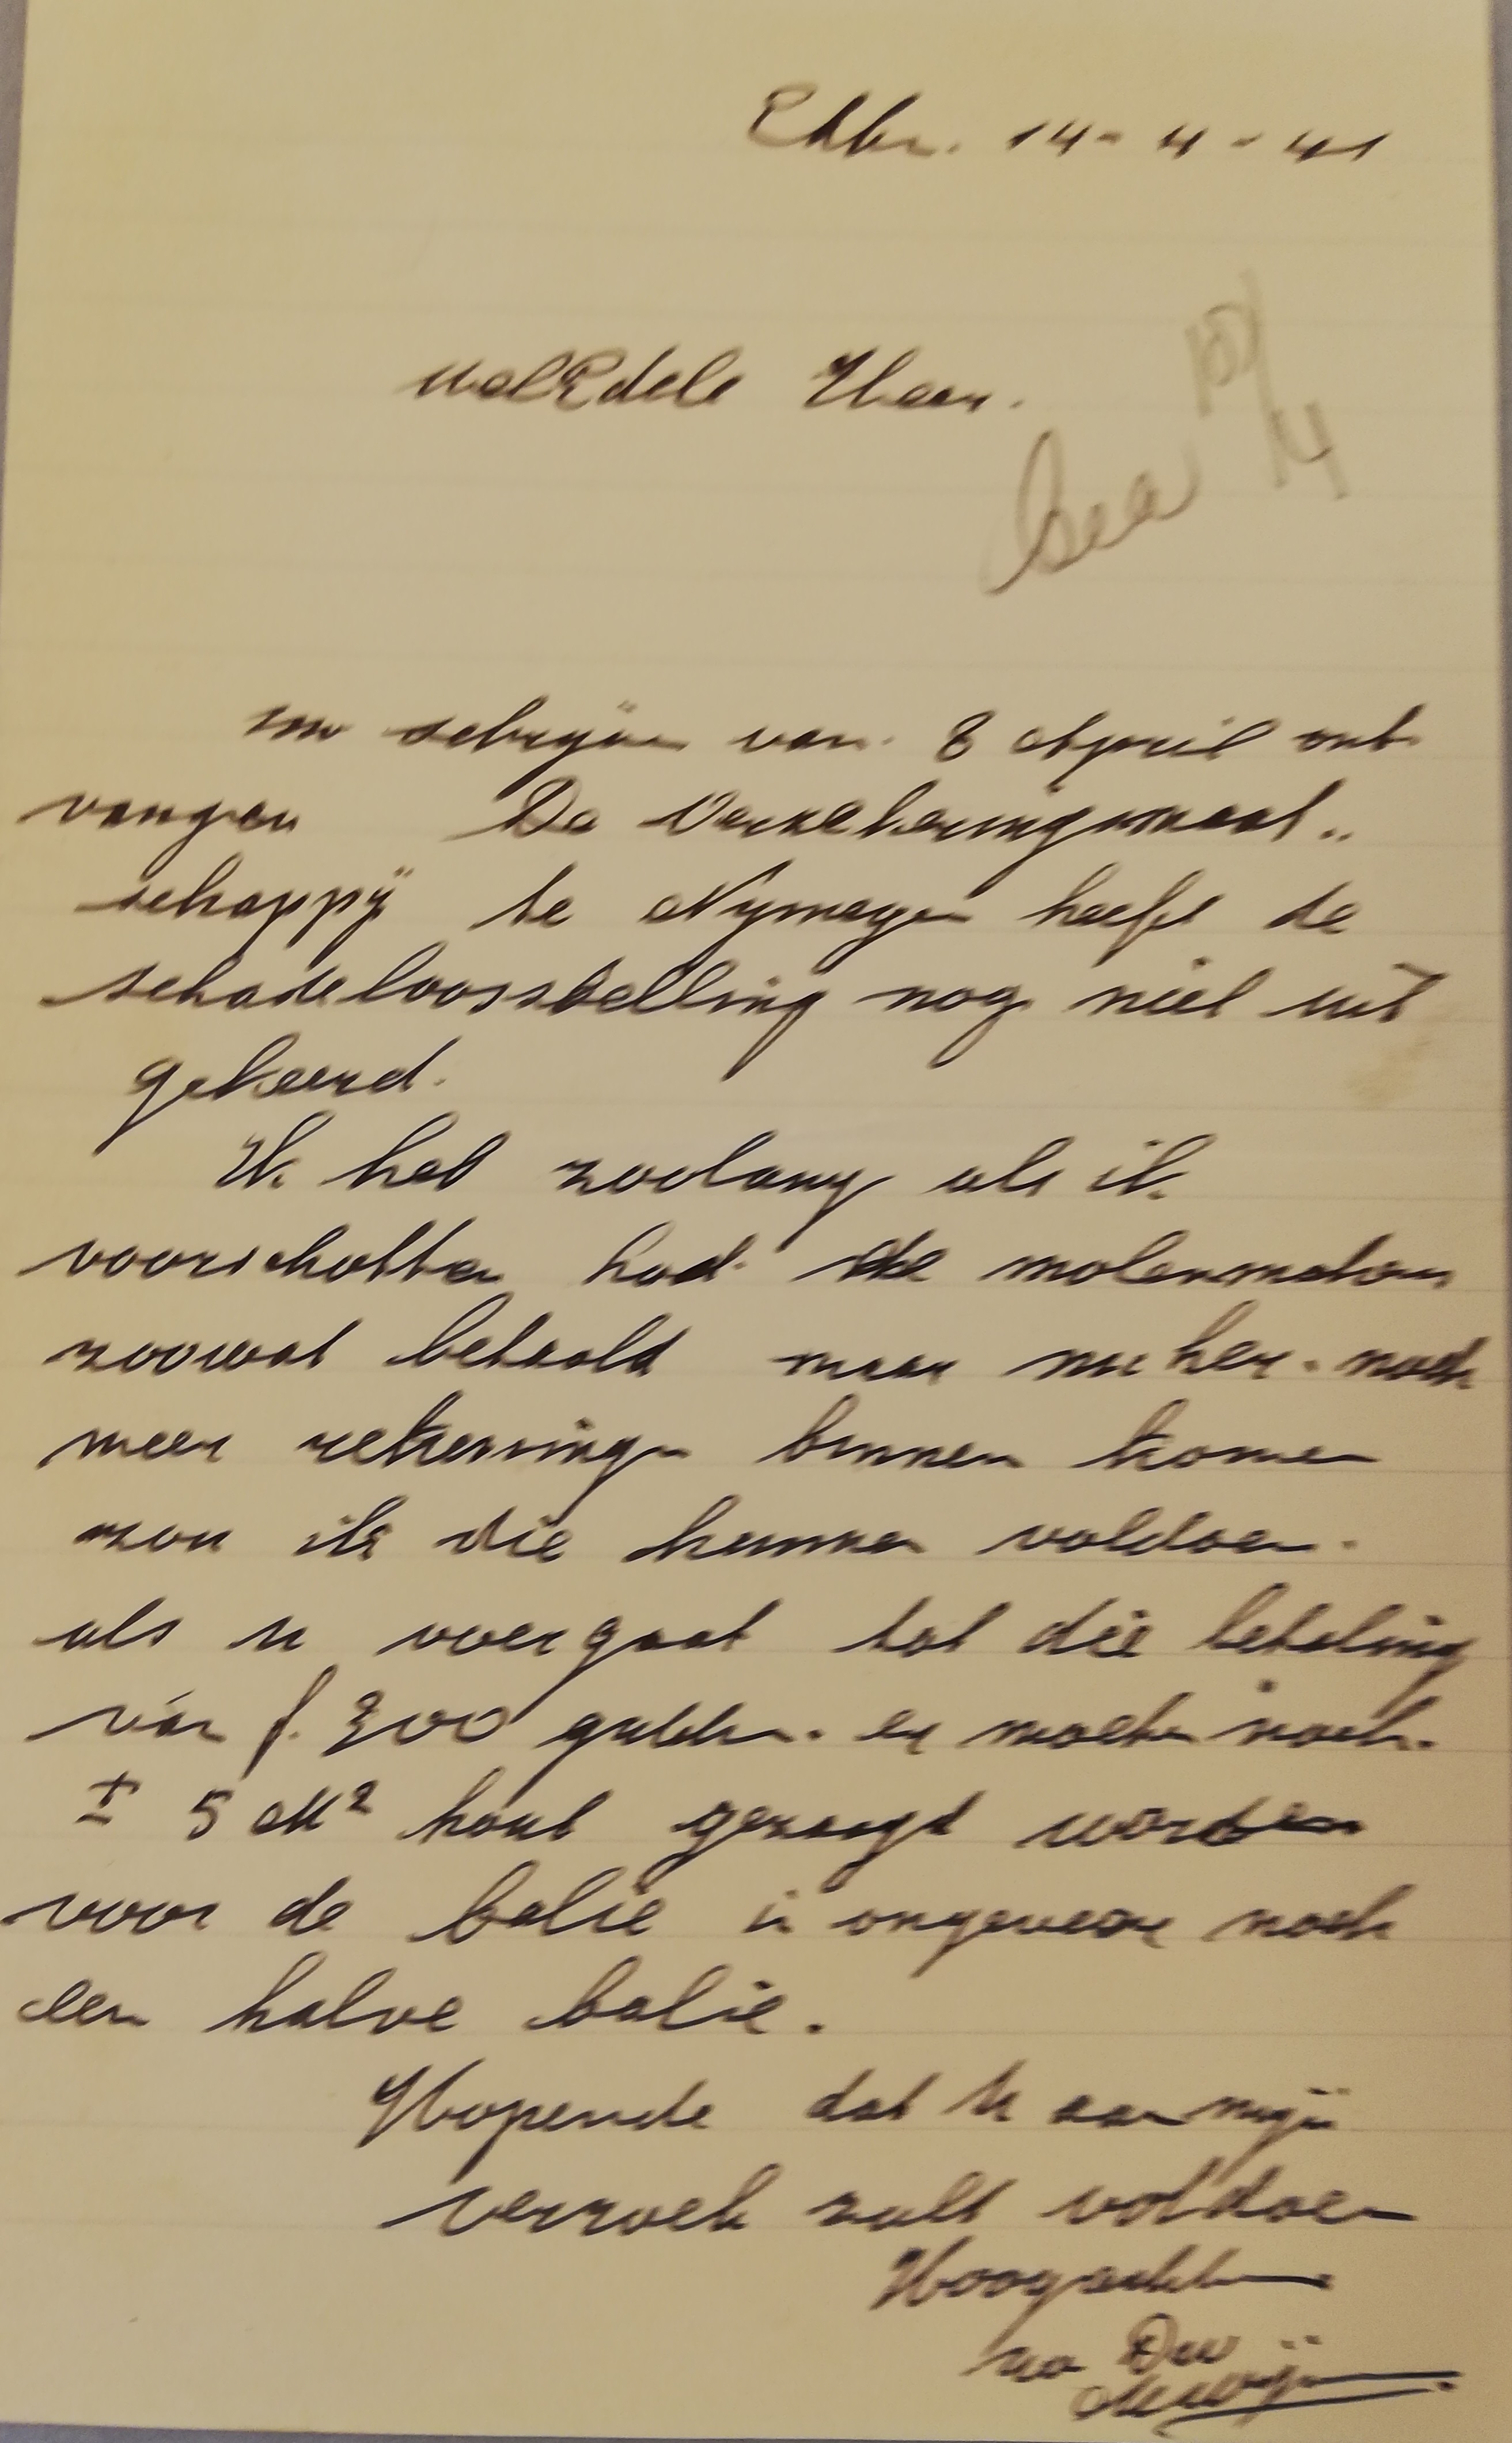 14-4-41
WelEdele Heer.
15/4
Uw schrijven van 8 April ont
vangen De Verzekeringsmaat„
schappij te Nymegen heeft de
schadeloosstelling nog niet uit
gekeerd.
Ik heb zoolang als ik
voorschotten had de molenmakers
zoowat betaald maar nu her. noch
meer rekeningen binnen komen
zou ik die kunnen voldoen.
als u voergaat tot die betaling
van f. 300 gulden. er moeten noch.
± 5 M2 hout gezaagd worden
voor de balie is ongeveer noch
een halve balie.
Hopende dat U aan mijn
verzoek zult voldoen
Hoogachtend
Uw Dw